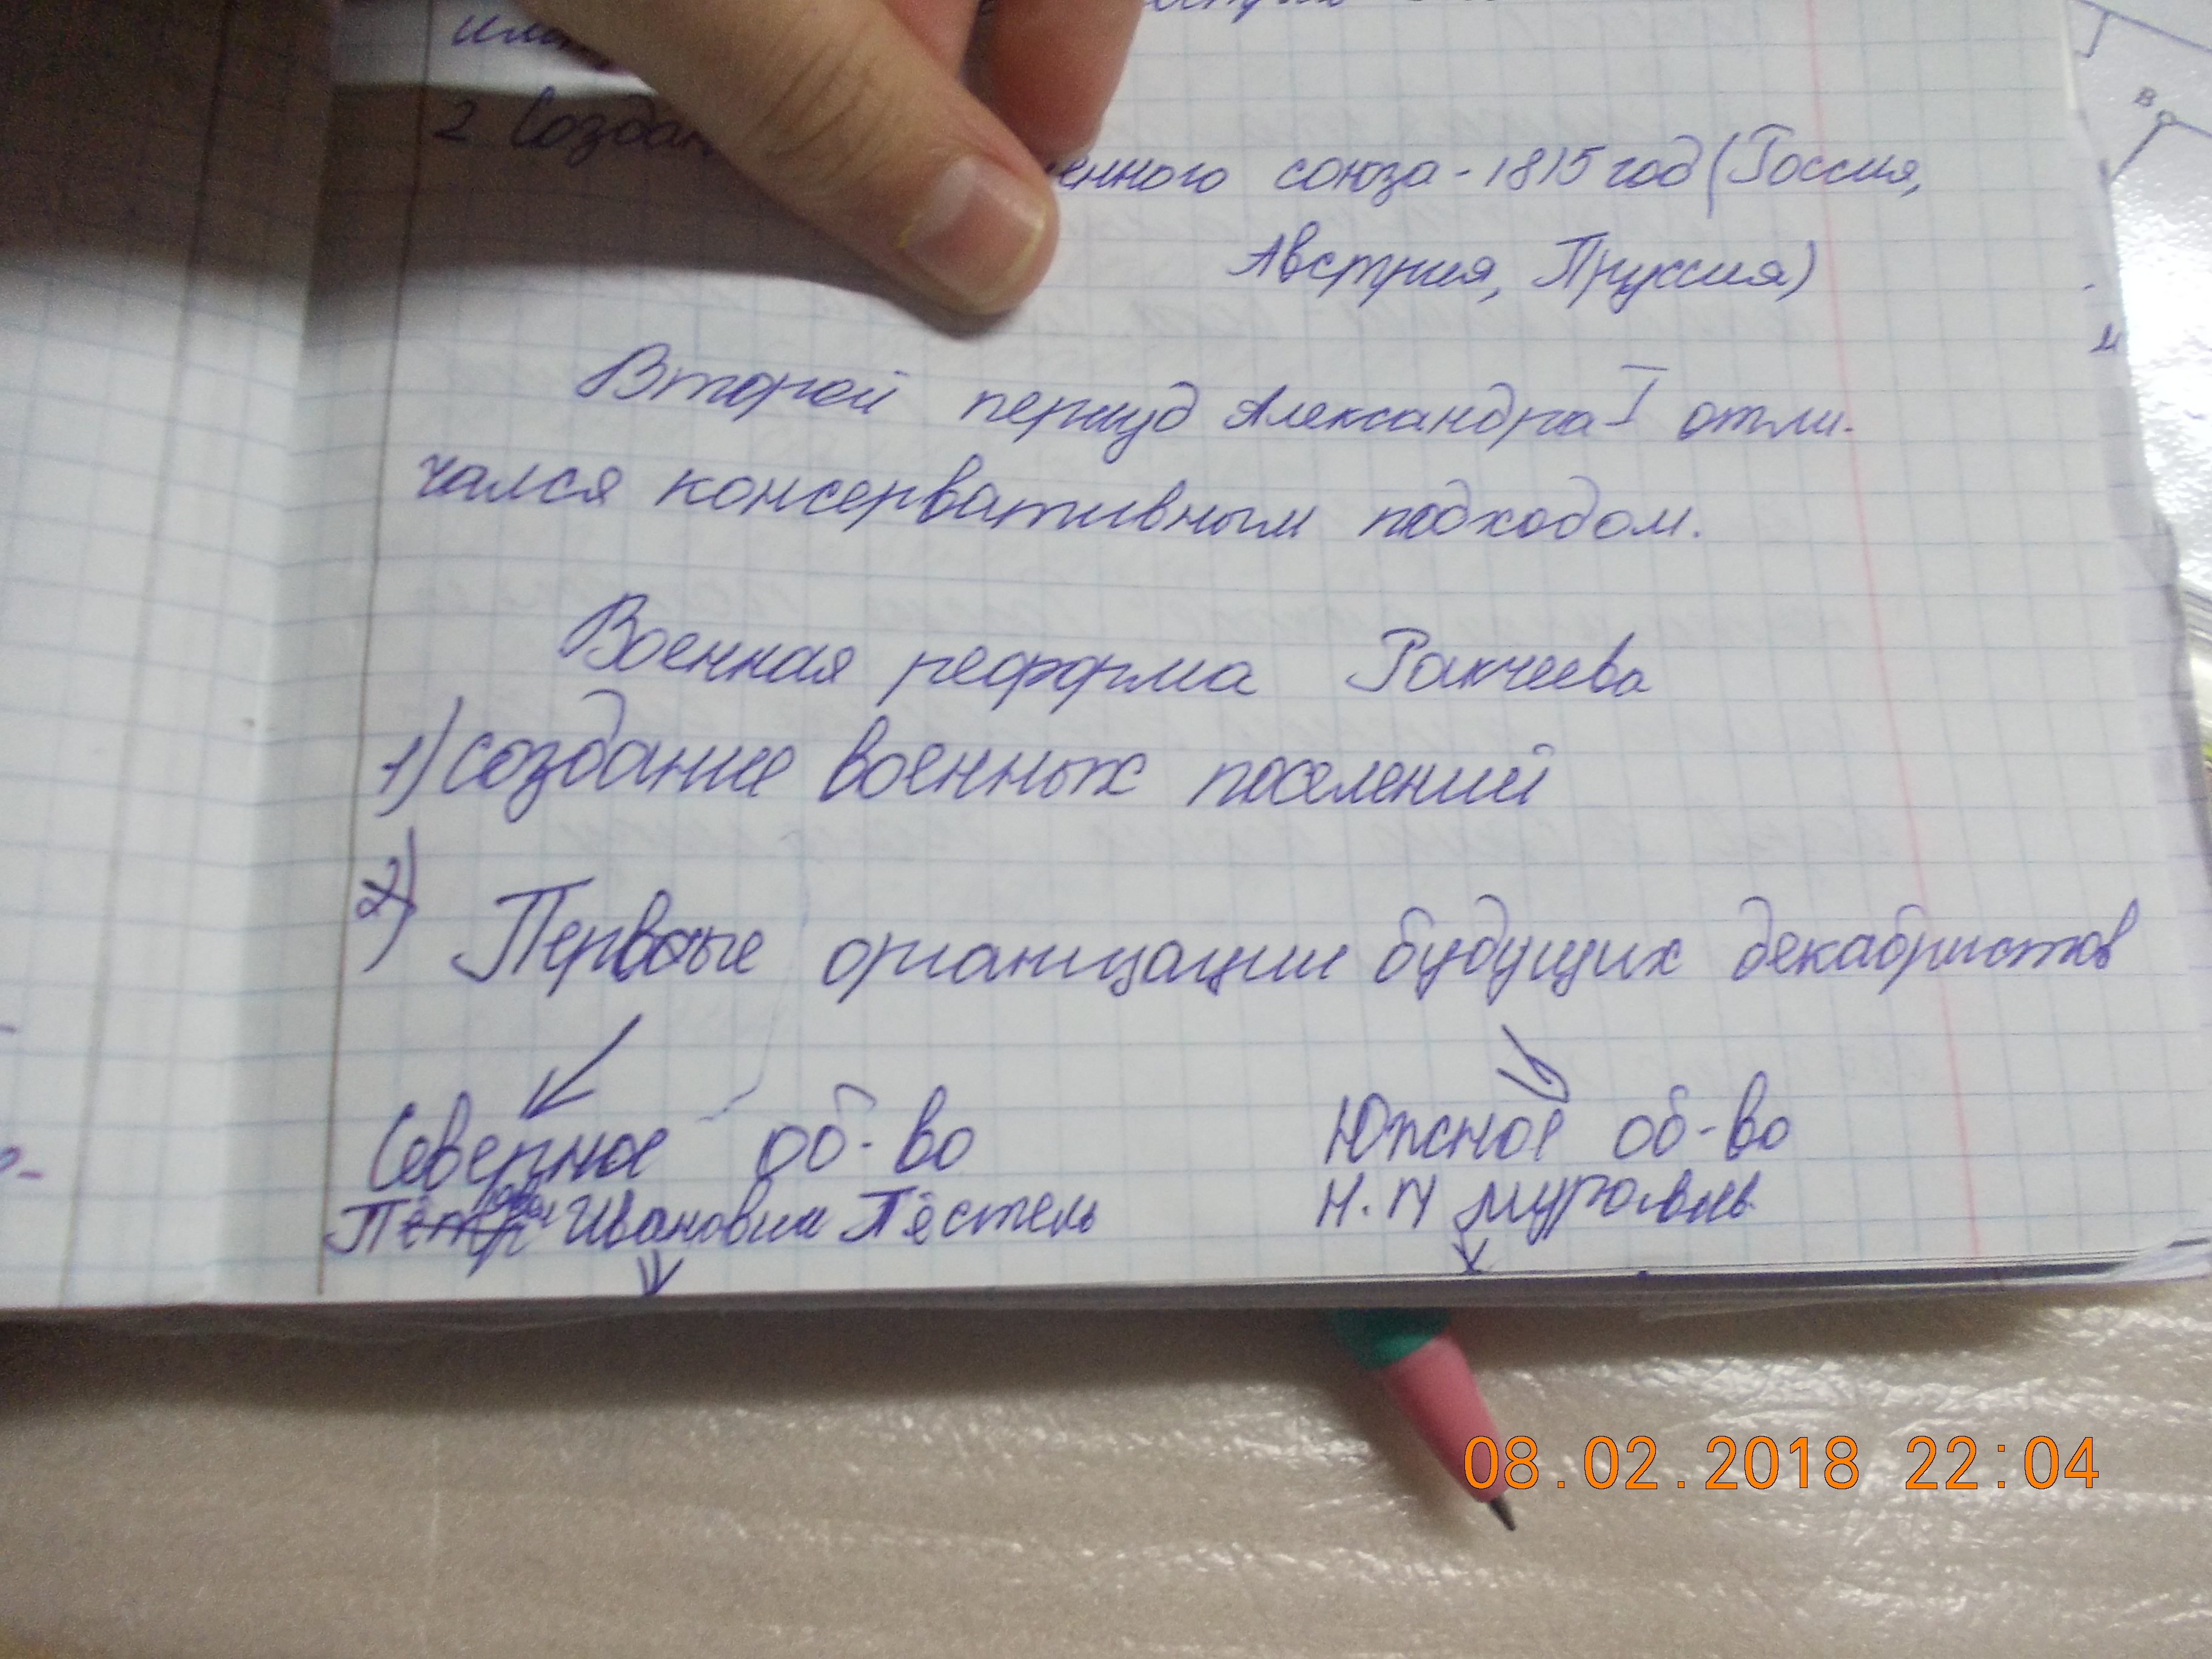 2 Создан енного союза - 1815 год (Россия,
Австрия, Пруссия)
Второй период Александра I отли-
чался консервативным подходом.
Военная реформа Ракчеева
1) создание военных поселений
2) Первые организации будущих декабристов
Северное об-во Южное об-во
Пётр Павел Иванович Пестель Н. М Муравьёв
В
08.02.2018 22:04